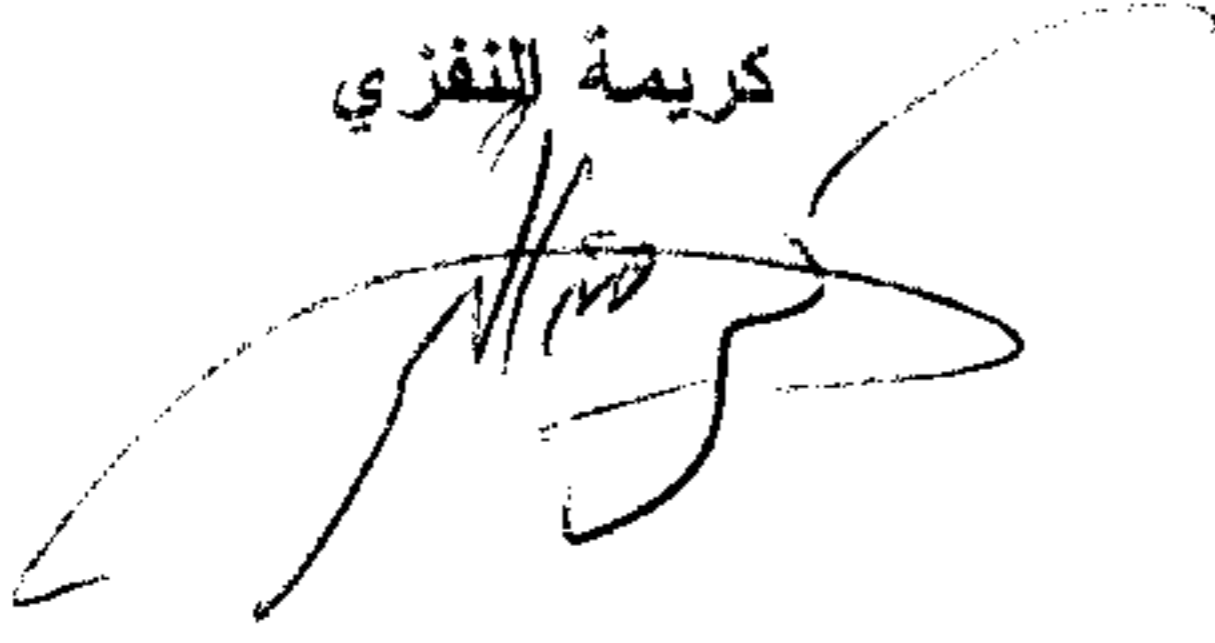 كريمة النفزي